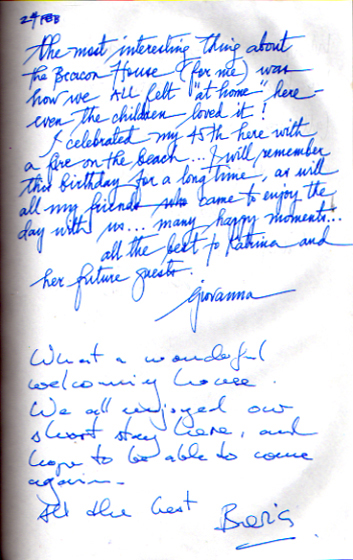 24 FEB
the most interesting thing about
the Beacon House (for me) was
how we ALL felt "at home" here -
even the children loved it!
I celebrated my 45th here with
a fire on the beach... I will remember
this birthday for a long time, as will
all my friends who came to enjoy the
day with us... many happy moments...
all the best to Katrina and
her future guests.
Giovanna
What a wonderful
welcoming house.
We all enjoyed our
short stay here, and
hope to be able to come
again.
All the best